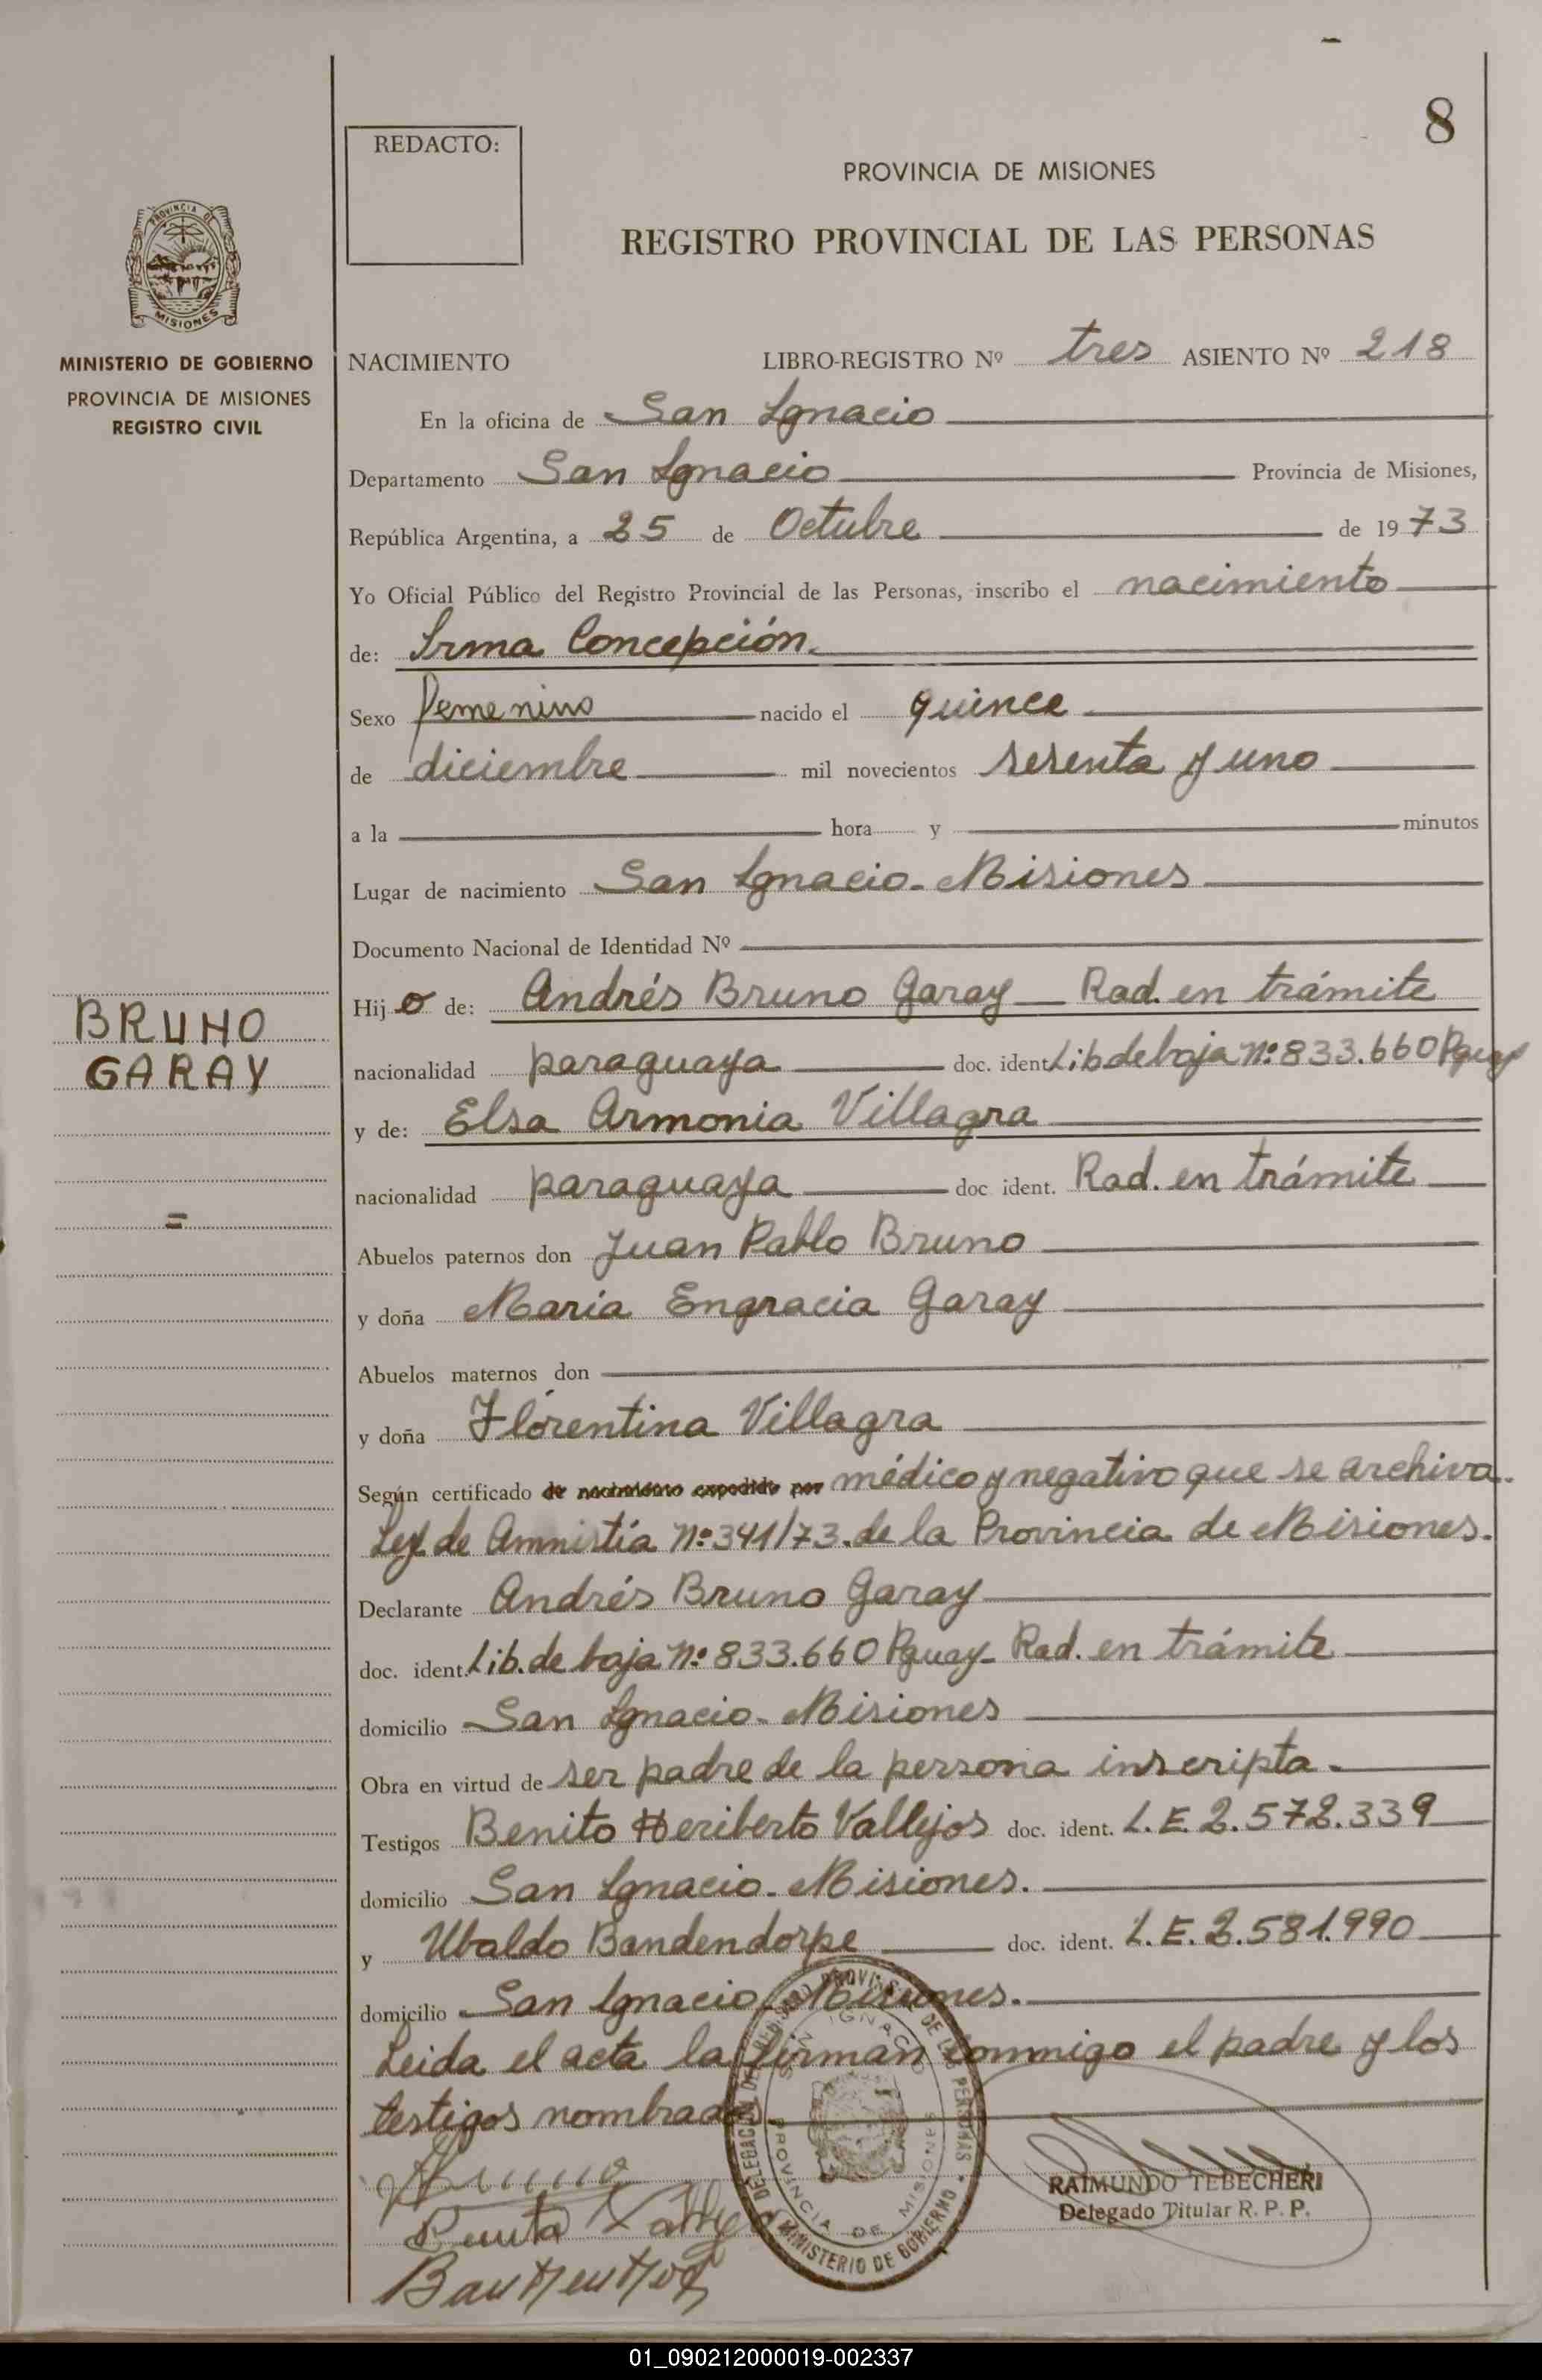 8
REDACTO:
PROVINCIA DE MISIONES
REGISTRO PROVINCIAL DE LAS PERSONAS
PROVINCIA DE
MISIONES
MINISTERIO DE GOBIERNO
PROVINCIA DE MISIONES
REGISTRO CIVIL
NACIMIENTO LIBRO-REGISTRO Nº tres ASIENTO Nº 218
En la oficina de San Ignacio
Departamento San Ignacio Provincia de Misiones,
República Argentina, a 25 de Octubre de 1973
Yo Oficial Público del Registro Provincial de las Personas, inscribo el nacimiento
de: Irma Concepción.
Sexo femenino nacido el quince
de diciembre mil novecientos sesenta y uno
a la hora y minutos
Lugar de nacimiento San Ignacio - Misiones
Documento Nacional de Identidad Nº
BRUNO
GARAY
=
Hijo de: Andrés Bruno Garay — Rad. en trámite
nacionalidad paraguaya doc. ident. Lib de baja Nº 833.660 Pguay
y de: Elsa Armonia Villagra
nacionalidad paraguaya doc ident. Rad. en trámite
Abuelos paternos don Juan Pablo Bruno
y doña Maria Engracia Garay
Abuelos maternos don
y doña Florentina Villagra
Según certificado de nacimiento expedido por médico y negativo que se archiva.
Ley de Amnistía Nº 341/73. de la Provincia de Misiones.
Declarante Andrés Bruno Garay
doc. ident. Lib. de baja Nº 833.660 Pguay - Rad. en trámite
domicilio San Ignacio - Misiones
Obra en virtud de ser padre de la persona inscripta.
Testigos Benito Heriberto Vallejos doc. ident. L.E. 2.572.339
domicilio San Ignacio - Misiones.
y Ubaldo Bandendorpe doc. ident. L.E. 2.581.990
domicilio San Ignacio - Misiones.
Leida el acta la firman conmigo el padre y los
testigos nombrados.
DELEGACION DEL REGISTRO PROVINCIAL DE LAS PERSONAS
SAN IGNACIO
PROVINCIA DE MISIONES
MINISTERIO DE GOBIERNO
RAIMUNDO TEBECHERI
Delegado Titular R. P. P.
01_090212000019-002337